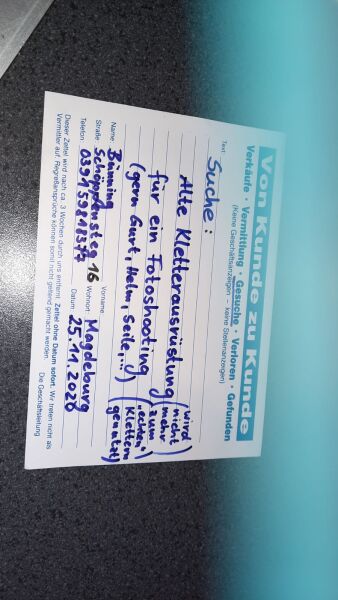 Von Kunde zu Kunde
Verkäufe · Vermittlung · Gesuche · Verloren · Gefunden
(Keine Geschäftsanzeigen – keine Stellenanzeigen)
Text
Suche:
Alte Kletterausrüstung
für ein Fotoshooting
(gern Gurt, Helm, Seile,...)
(wird nicht mehr zum "echten" Klettern genutzt)
Name: Bänning Vorname:
Straße: Schöppensteg 16 Wohnort: Magdeburg
Telefon: 0391 59818374 Datum: 25.11.2020
Dieser Zettel wird nach ca. 3 Wochen durch uns entfernt. Zettel ohne Datum sofort. Wir treten nicht als
Vermittler auf. Regreßansprüche können somit nicht geltend gemacht werden.
Die Geschäftsleitung